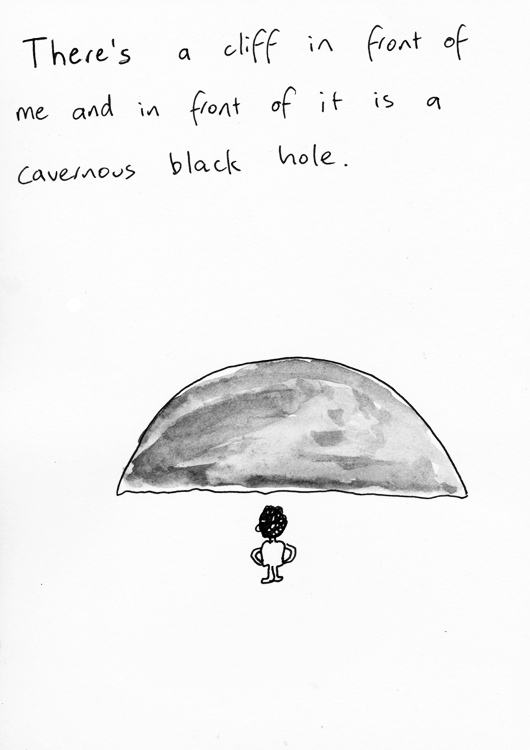 There's a cliff in front of
me and in front of it is a
cavernous black hole.